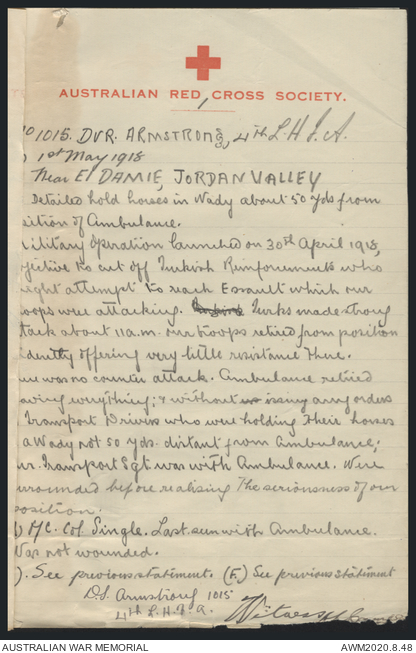 AUSTRALIAN RED CROSS SOCIETY.
1015. DVR. ARMSTRONG, 4th L.H.F.A.
1st May 1918
Near El DAMIE, JORDAN VALLEY
Detailed hold horses in Wady about 50 yds from
sition of Ambulance.
ilitary Operation launched on 30th April 1918,
jective to cut off Turkish Reinforcements who
ight attempt to reach Essault which our
oops were attacking. Turks made strong
tack about 11 a.m. our troops retired from position
idently offering very little resistance there.
ere was no counter attack. Ambulance retired
aving everything; & without issuing any orders
Transport Drivers who were holding their horses
a Wady not 50 yds. distant from Ambulance;
ur. Transport Sgt was with Ambulance. Were
urrounded before realising the seriousness of our
position.
) O/C. Col. Single. Last seen with Ambulance.
Was not wounded.
). See previous statement. (F.) See previous statement
D.S. Armstrong 1015
4th L.H.F.A.
AUSTRALIAN WAR MEMORIAL
AWM2020.8.48